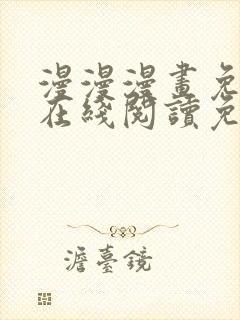 漫漫漫畫免
在綫閱讀免
澹臺鏡